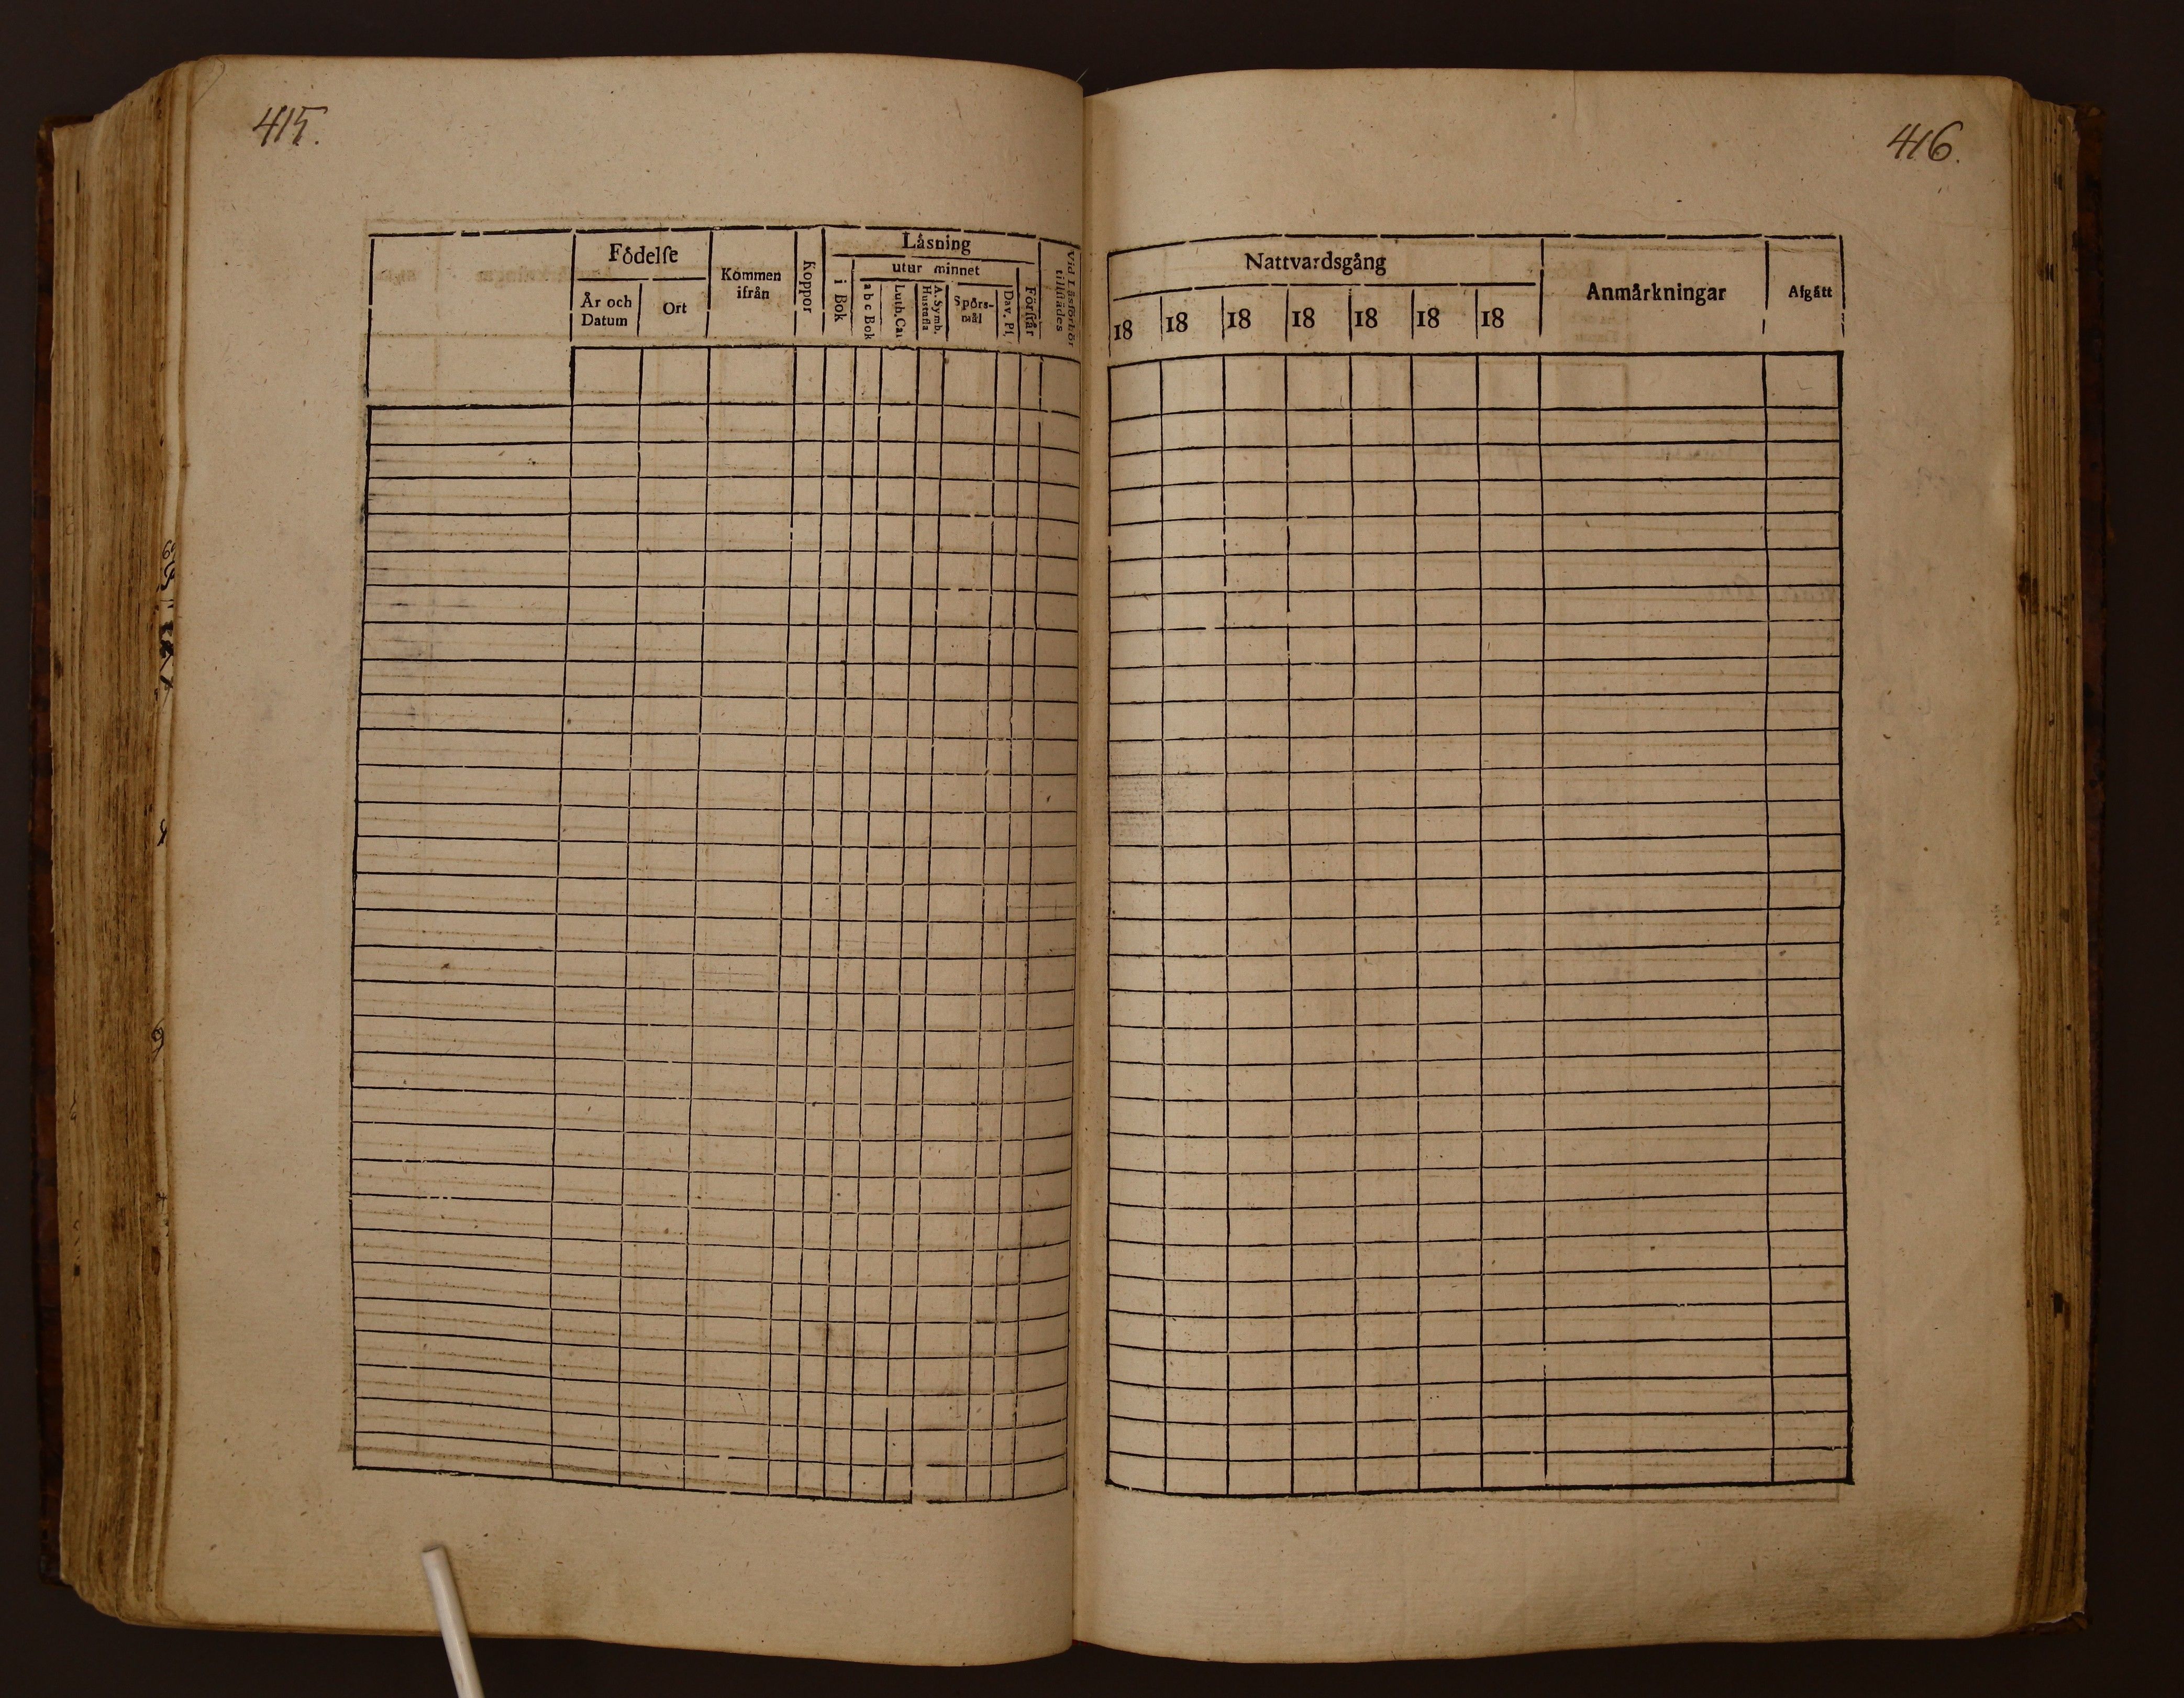 415.
Födelſe
År och
Datum
Ort
Kommen
ifrån
Koppor
Läsning
i Bok
utur minnet
a b c Bok
Luth. Cat
A. Symb.
Hustafla
Spörs-
mål
Dav. Pſ.
Förſtår
Vid Läsförhör
tillſtädes
416.
Nattvardsgång
18 18 18 18 18 18 18
Anmärkningar
Afgått